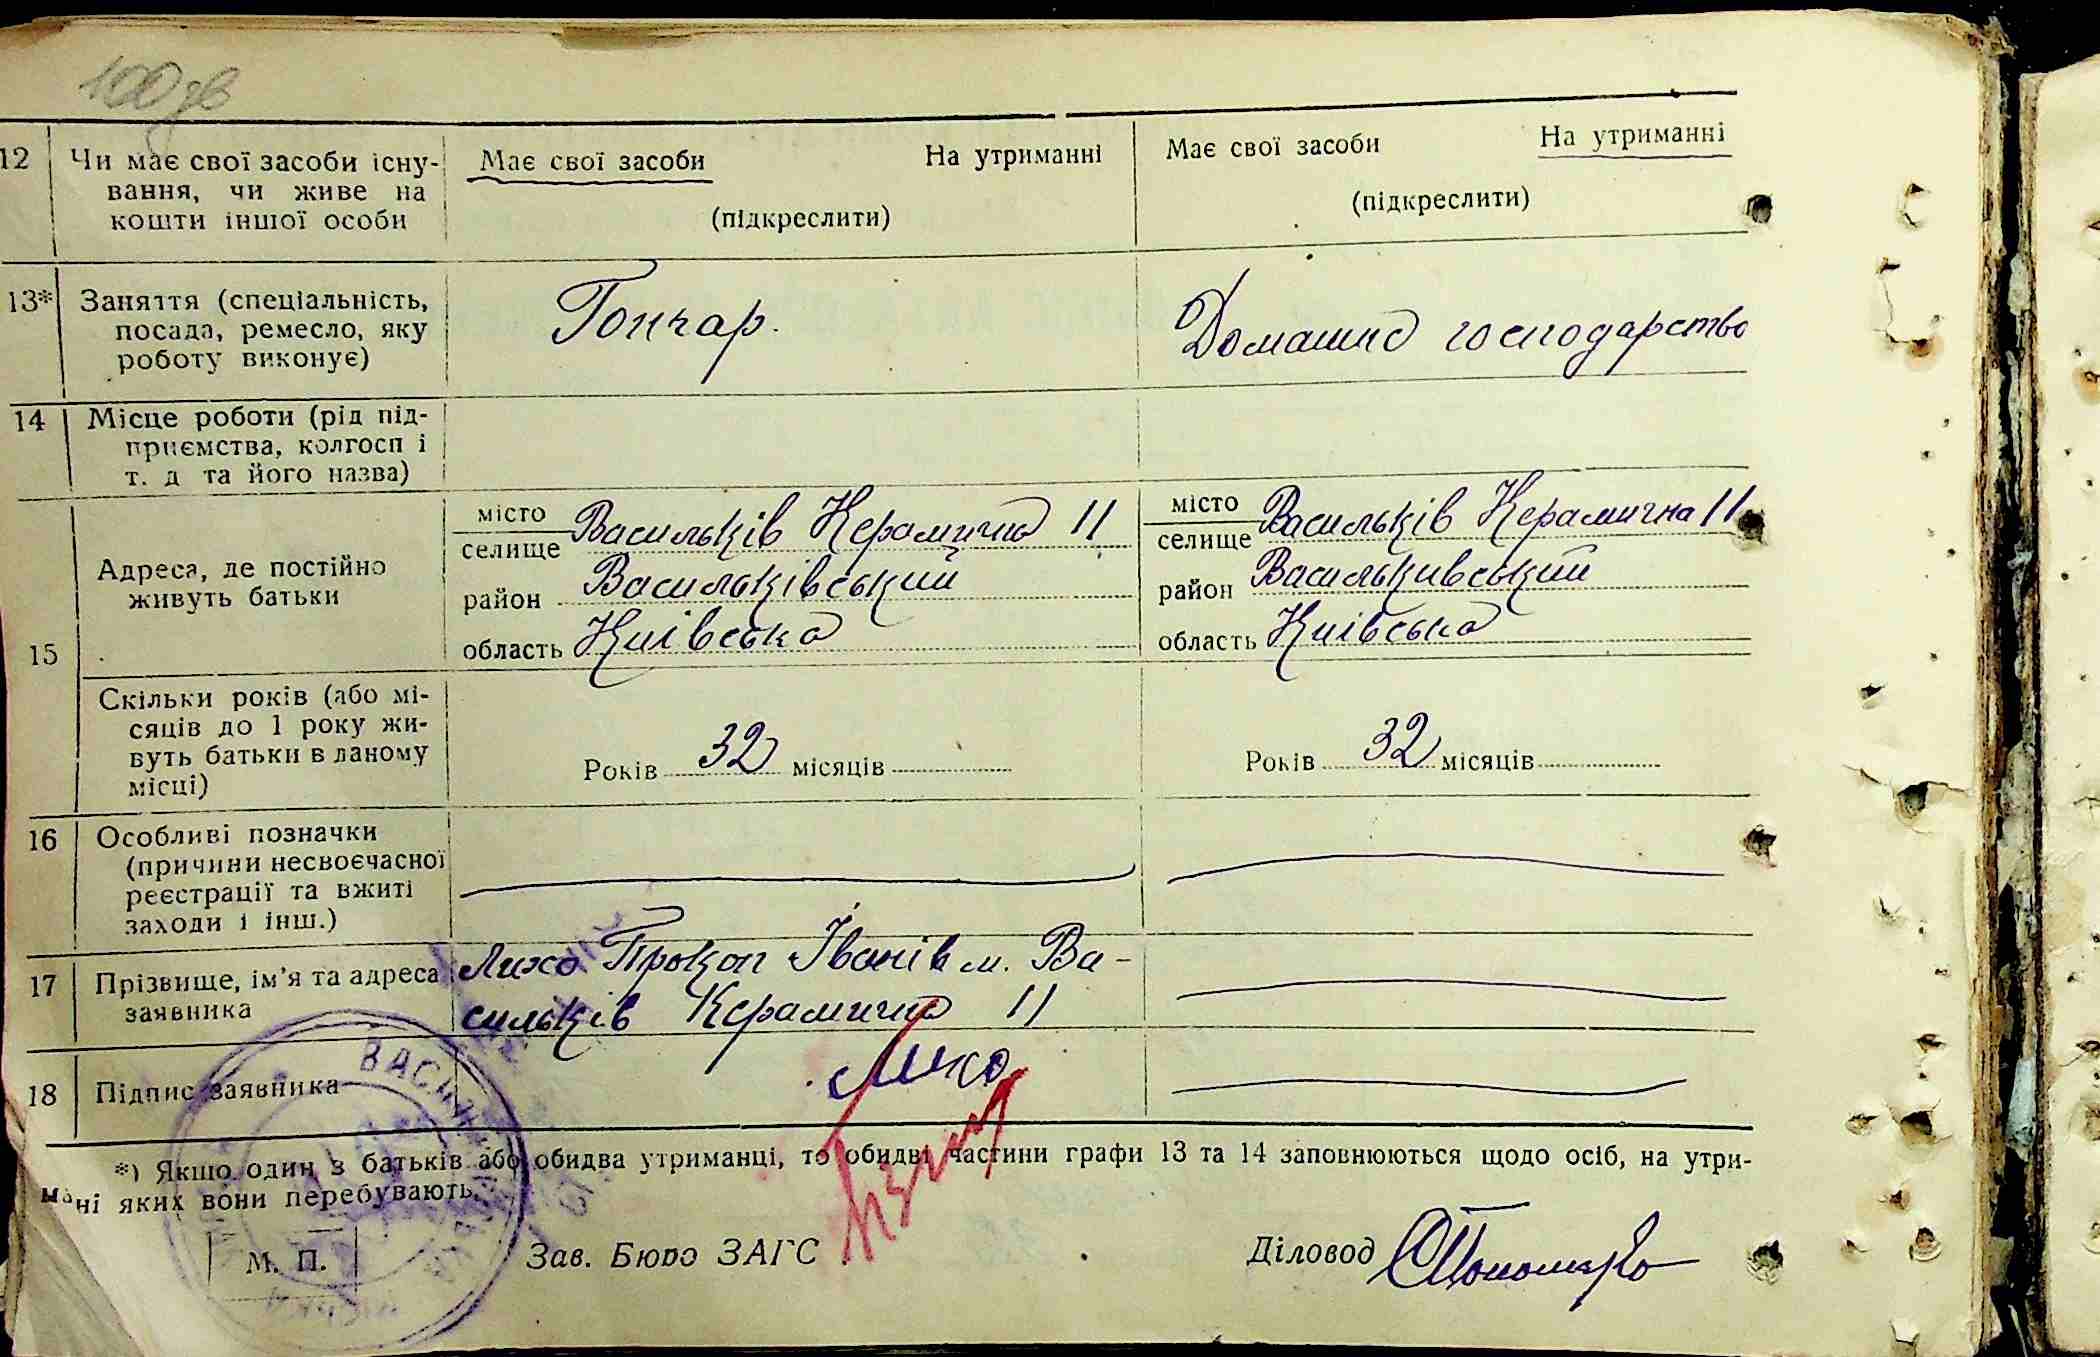 100 зв
12 Чи має свої засоби існу- Має свої засоби На утриманні Має свої засоби На утриманні
вання, чи живе на
кошти іншої особи (підкреслити) (підкреслити)
13* Заняття (спеціальність, Гончар. Домашнє господарство
посада, ремесло, яку
роботу виконує)
14 Місце роботи (рід під-
приємства, колгосп і
т. д та його назва)
15 Адреса, де постійно
живуть батьки
місто Васильків Керамична 11 місто Васильків Керамична 11
селище селище
район Васильківський район Василькивський
область Київська область Київська
Скільки років (або мі-
сяців до 1 року жи-
вуть батьки в даному Років 32 місяців Років 32 місяців
місці)
16 Особливі позначки
(причини несвоєчасної
реєстрації та вжиті
заходи і інш.)
17 Прізвище, ім'я та адреса Лихо Прокоп Іванів м. Ва-
заявника сильків Керамична 11
18 Підпис заявника Лихо
*) Якщо один з батьків або обидва утриманці, то обидві частини графи 13 та 14 заповнюються щодо осіб, на утри-
мані яких вони перебувають.
М. П. Зав. Бюро ЗАГС Діловод